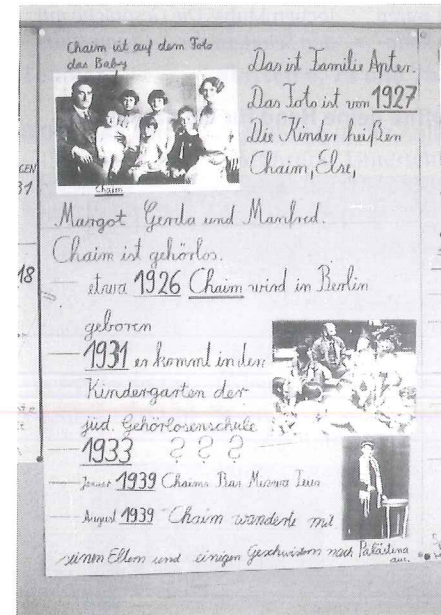 Chaim ist auf dem Foto
das Baby
Das ist Familie Apter.
Das Foto ist von 1927
Die Kinder heißen
Chaim, Else,
Chaim
Margot Gerda und Manfred.
Chaim ist gehörlos.
etwa 1926 Chaim wird in Berlin
geboren
1931 er kommt in den
Kindergarten der
jüd. Gehörlosenschule
1933 ? ? ?
Januar 1939 Chaims Bar Mizwa
August 1939 Chaim wanderte mit
seinen Eltern und einigen Geschwistern nach Palästina
aus.
GEN
31
18